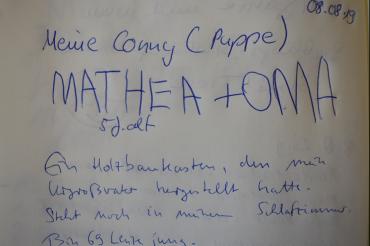 08.08.19
Meine Conny (Puppe)
MATHEA + OMA
5 J. alt
Ein Holzbaukasten, den mein
Urgroßvater hergestellt hatte.
Steht noch in meinem Schlafzimmer.
Bin 69 Lenze jung.